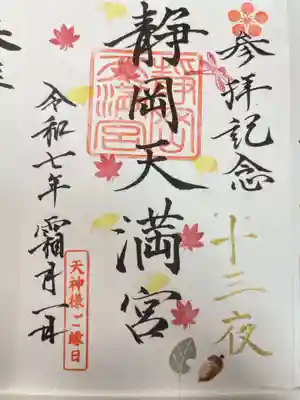 参拝記念
十三夜
静岡天満宮
令和七年 霜月一日
天神様ご縁日